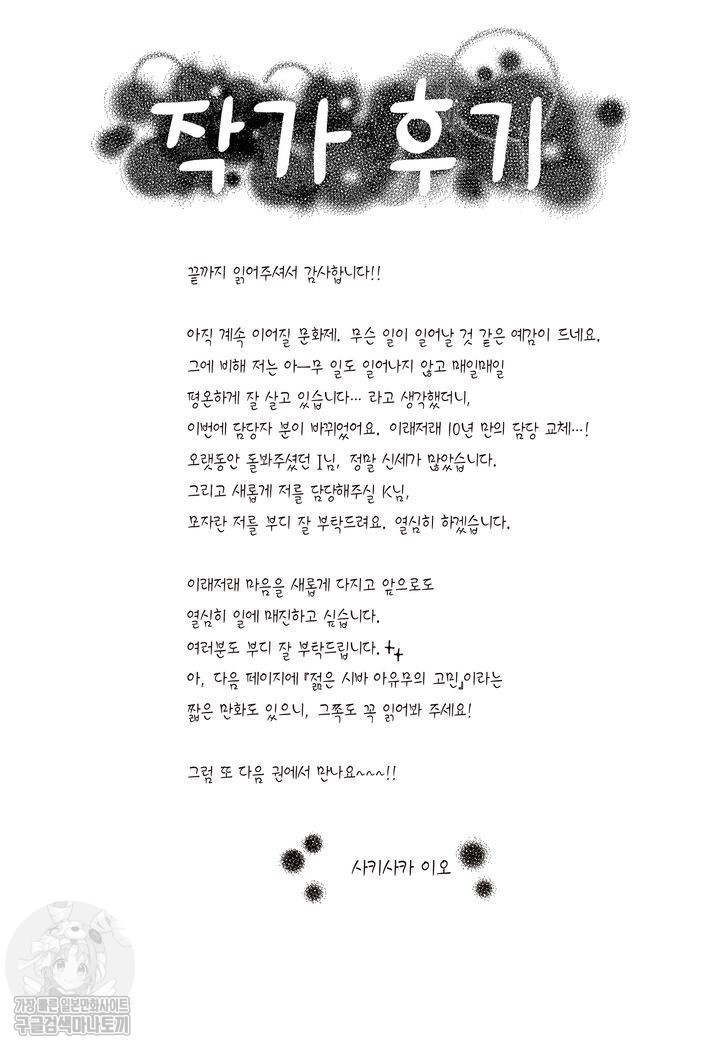 작가 후기
끝까지 읽어주셔서 감사합니다!!
아직 계속 이어질 문화제. 무슨 일이 일어날 것 같은 예감이 드네요.
그에 비해 저는 아―무 일도 일어나지 않고 매일매일
평온하게 잘 살고 있습니다… 라고 생각했더니,
이번에 담당자 분이 바뀌었어요. 이래저래 10년 만의 담당 교체…!
오랫동안 돌봐주셨던 I님, 정말 신세가 많았습니다.
그리고 새롭게 저를 담당해주실 K님,
모자란 저를 부디 잘 부탁드려요. 열심히 하겠습니다.
이래저래 마음을 새롭게 다지고 앞으로도
열심히 일에 매진하고 싶습니다.
여러분도 부디 잘 부탁드립니다.
아, 다음 페이지에 『젊은 시바 아유무의 고민』이라는
짧은 만화도 있으니, 그쪽도 꼭 읽어봐 주세요!
그럼 또 다음 권에서 만나요~~~!!
사키사카 이오
가장 빠른 일본만화사이트
구글검색마나토끼